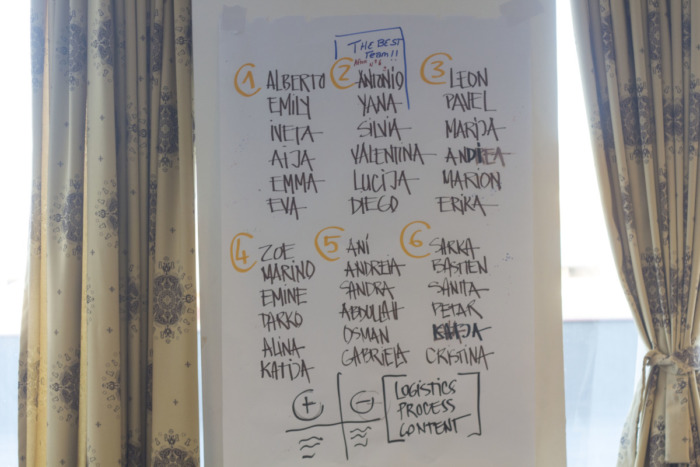 THE BEST
TEAM!!
1
ALBERTO
EMILY
INETA
AIJA
EMMA
EVA
2
ANTONIO
YANA
SILVIA
VALENTINA
LUCIJA
DIEGO
3
LEON
PAVEL
MARIJA
ANDREA
MARION
ERIKA
4
ZOE
MARINO
EMINE
DARKO
ALINA
KATIDA
5
ANÍ
ANDREIA
SANDRA
ABDULLAH
OSMAN
GABRIELA
6
SARKA
BASTIEN
SANITA
PETAR
CRISTINA
+
-
LOGISTICS
PROCESS
CONTENT